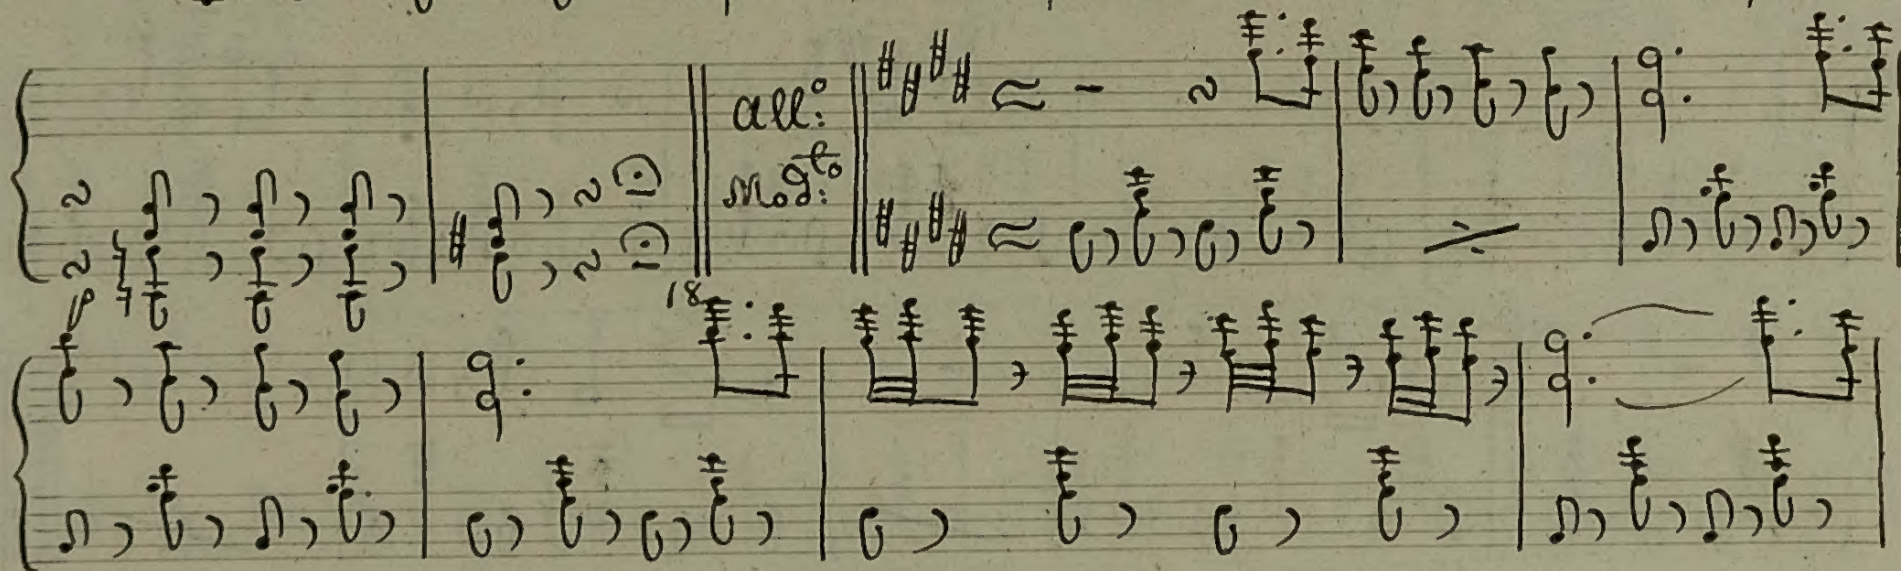 All:º
Mod:to
18